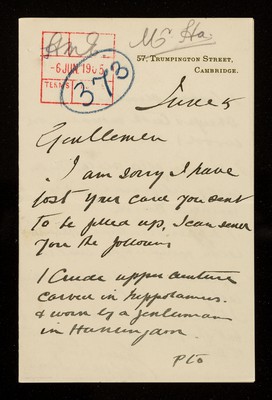 Mr Ha.
-6 JUN 1905
373
57, TRUMPINGTON STREET,
CAMBRIDGE.
June 5
Gentlemen
I am sorry I have
lost your card you sent
to be filled up, I can send
you the following
1 Crude upper denture
carved in hippotamus.
& worn by a gentleman
in Huntingdon.
PTO